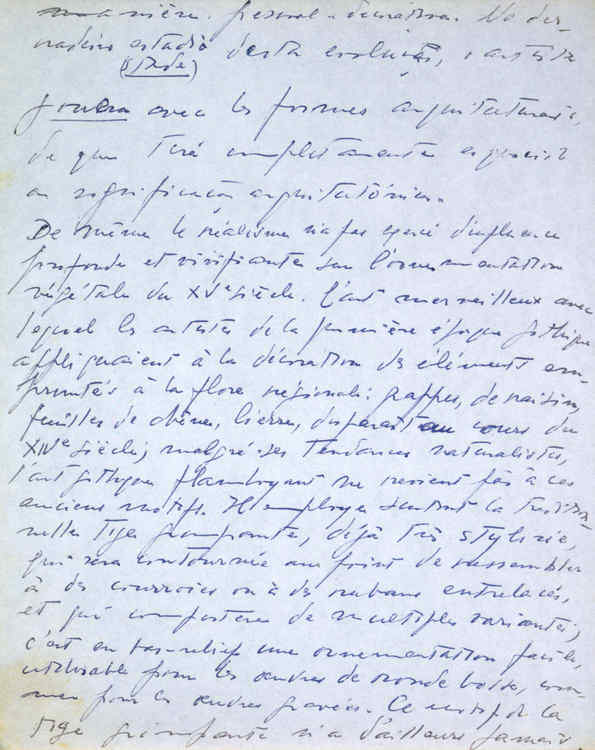 manière. fresval - décoration. No der-
radeiro estadio desta evolução, o artista
(stade)
jouera avec les formes arquiteturais,
de que terá completamente esquecido
a significação arquitetónica.
De même le réalisme n'a pas exercé d'influence
profonde et vivifiante sur l'ornementation
végétale du XVe siècle. L'art merveilleux avec
lequel les artistes de la première époque gothique
appliquaient à la décoration des éléments em-
pruntés à la flore régionale: grappes, de raisin,
feuilles de chêne, lierre, disparait au cours du
XIVe siècle; malgré ses tendances naturalistes,
l'art gothique flamboyant ne revient pas à ces
anciens motifs. Il employa surtout la tradition-
nelle tige grimpante, déjà très stylisée,
qui sera contournée au point de ressembler
à des courroies ou à des rubans entrelacés,
et qui comportera de multiples variantes;
c'est en bas-relief une ornementation facile,
utilisable pour les œuvres de ronde bosse, com-
me pour les œuvres gravées. Ce motif de la
tige grimpante n'a d'ailleurs jamais